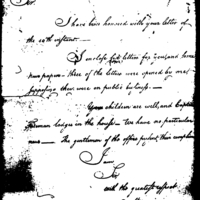 Sir
I have been honored with your letter of
the 10th instant.
I enclose five letters for you and several
newspapers - three of the letters were opened by me
supposing them were on public business.
Your children are well, and Captn
lodges in the house. We have no particular
news - The gentlemen of the office present their compliments
I am,
Sir
with the greatest respect